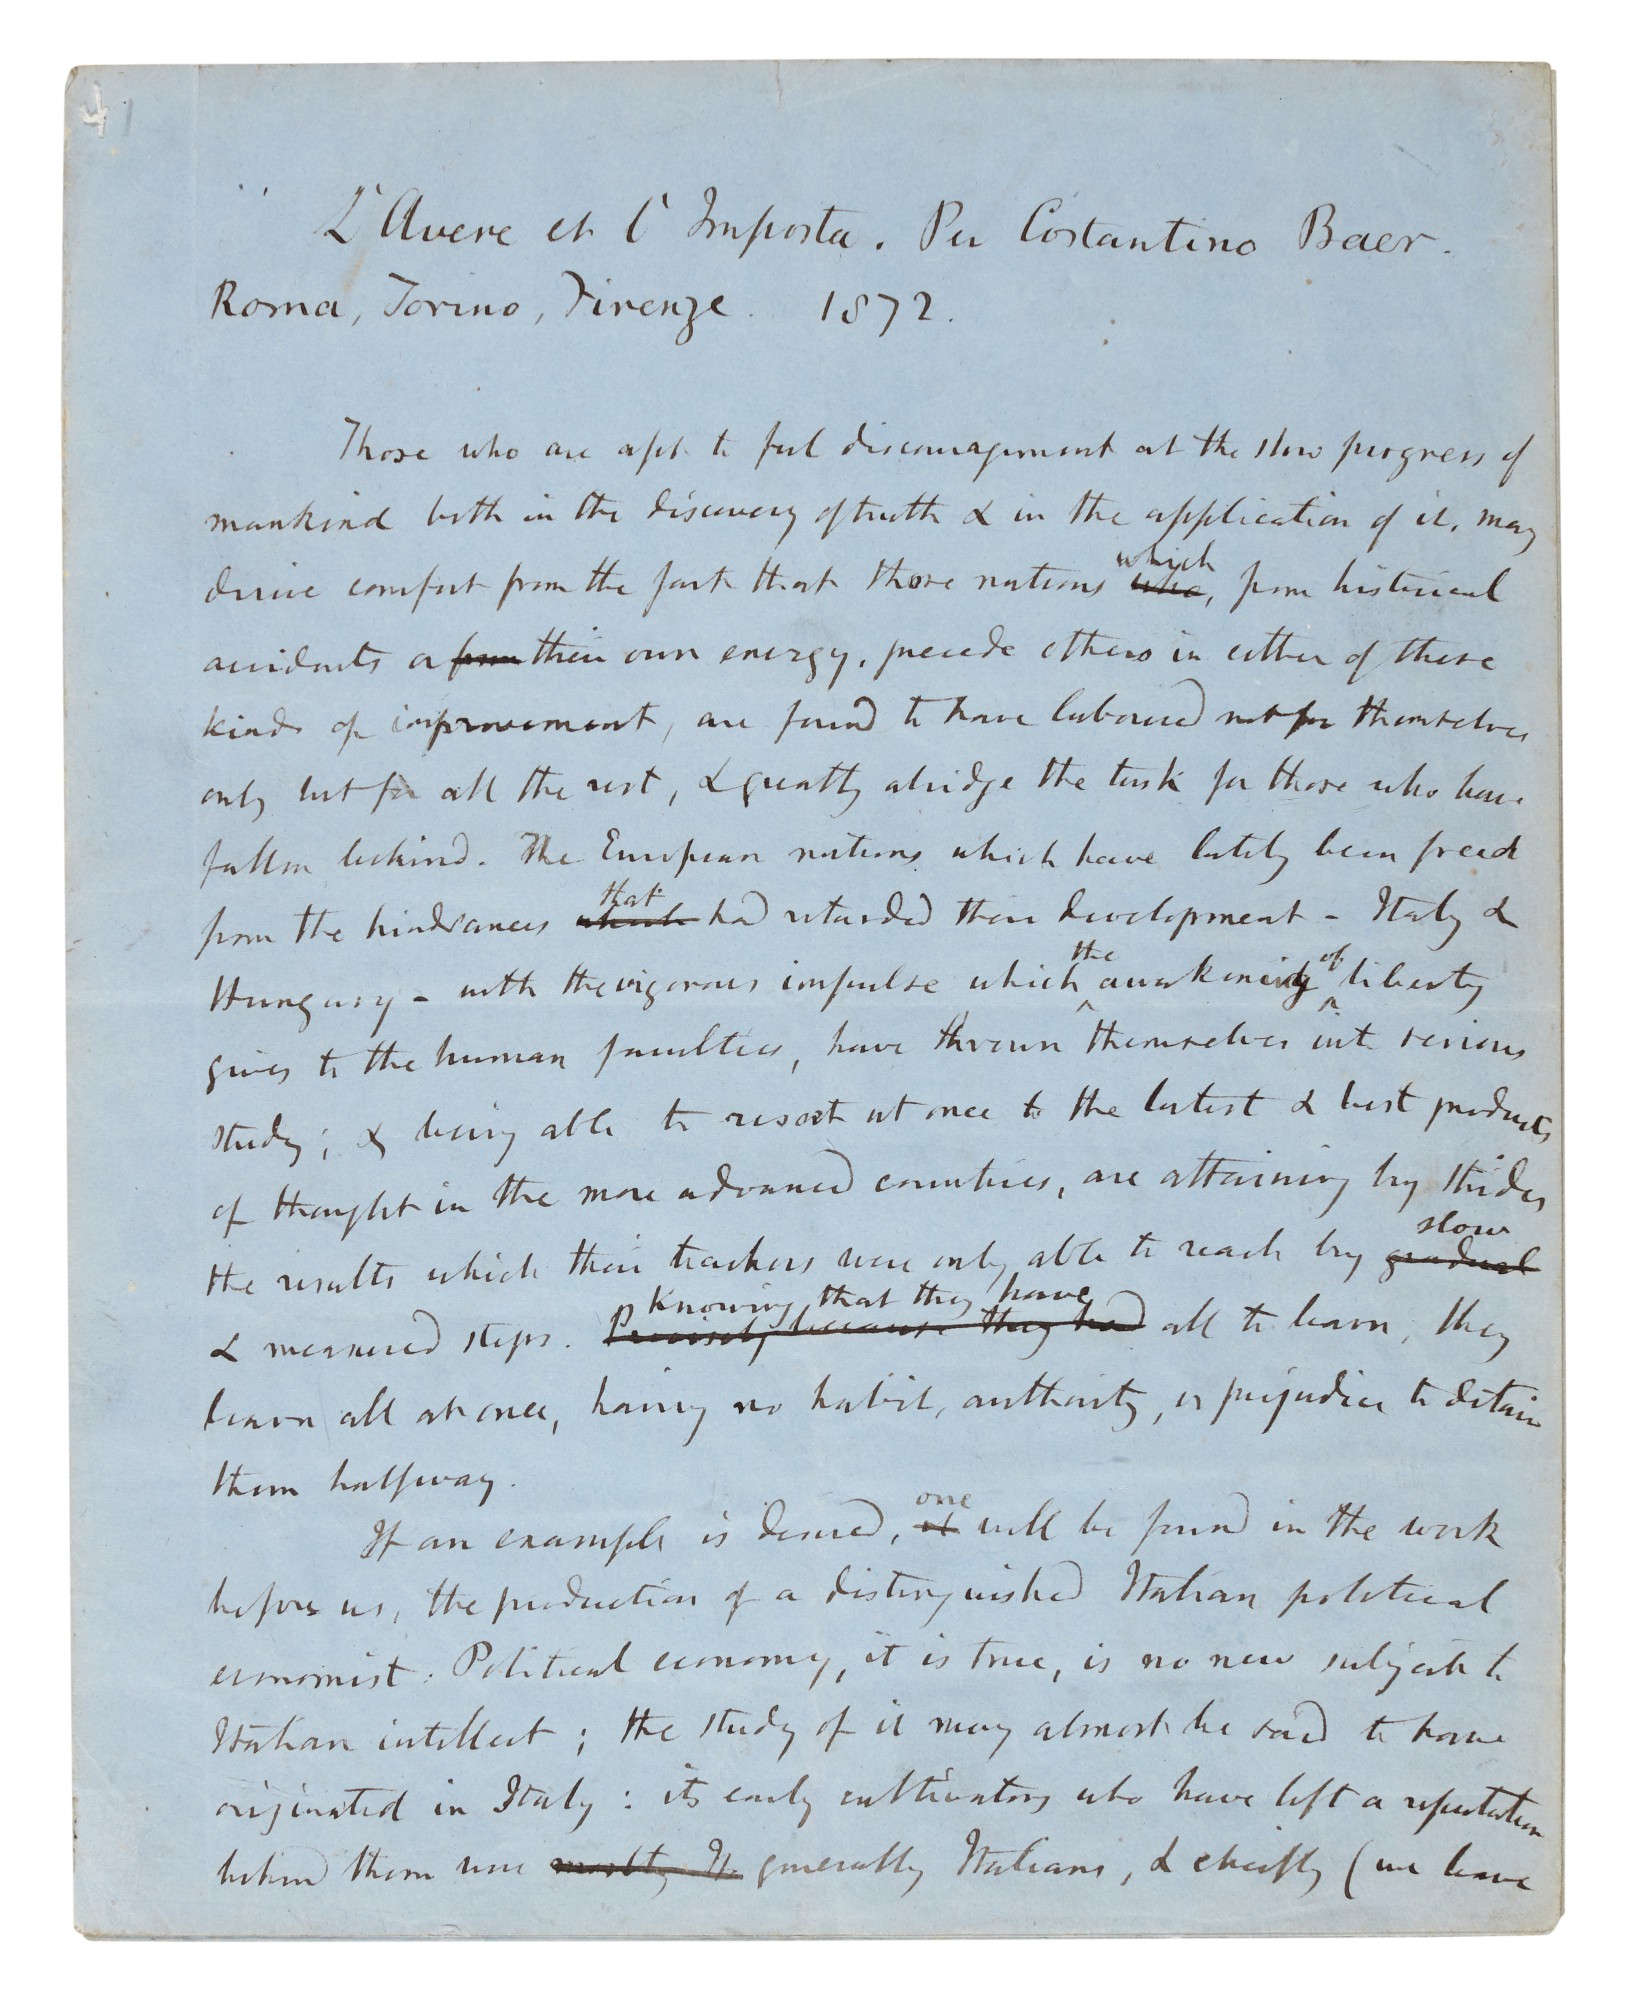 L'Avere et l'Imposta. Per Costantino Baer.
Roma, Torino, Firenze. 1872.
Those who are apt to feel discouragement at the slow progress of
mankind both in the discovery of truth & in the application of it, may
which
derive comfort from the fact that those nations who, from historical
accidents or from their own energy, precede others in either of these
kinds of improvement, are found to have laboured not for themselves
only but for all the rest, & greatly abridge the task for those who have
fallen behind. The European nations which have lately been freed
that
from the hindrances which had retarded their development - Italy &
the of
Hungary - with the vigorous impulse which awakening liberty
gives to the human faculties, have thrown themselves into serious
study; & being able to resort at once to the latest & best products
of thought in the more advanced countries, are attaining by strides
slow
the results which their teachers were only able to reach by gradual
Knowing that they have
& measured steps. Precisely because they had all to learn, they
learn all at once, having no habit, authority, or prejudice to detain
them halfway.
one
If an example is desired, it will be found in the work
before us, the production of a distinguished Italian political
economist. Political economy, it is true, is no new subject to
Italian intellect; the study of it may almost be said to have
originated in Italy: its early cultivators who have left a reputation
behind them were mostly It generally Italians, & chiefly (we leave